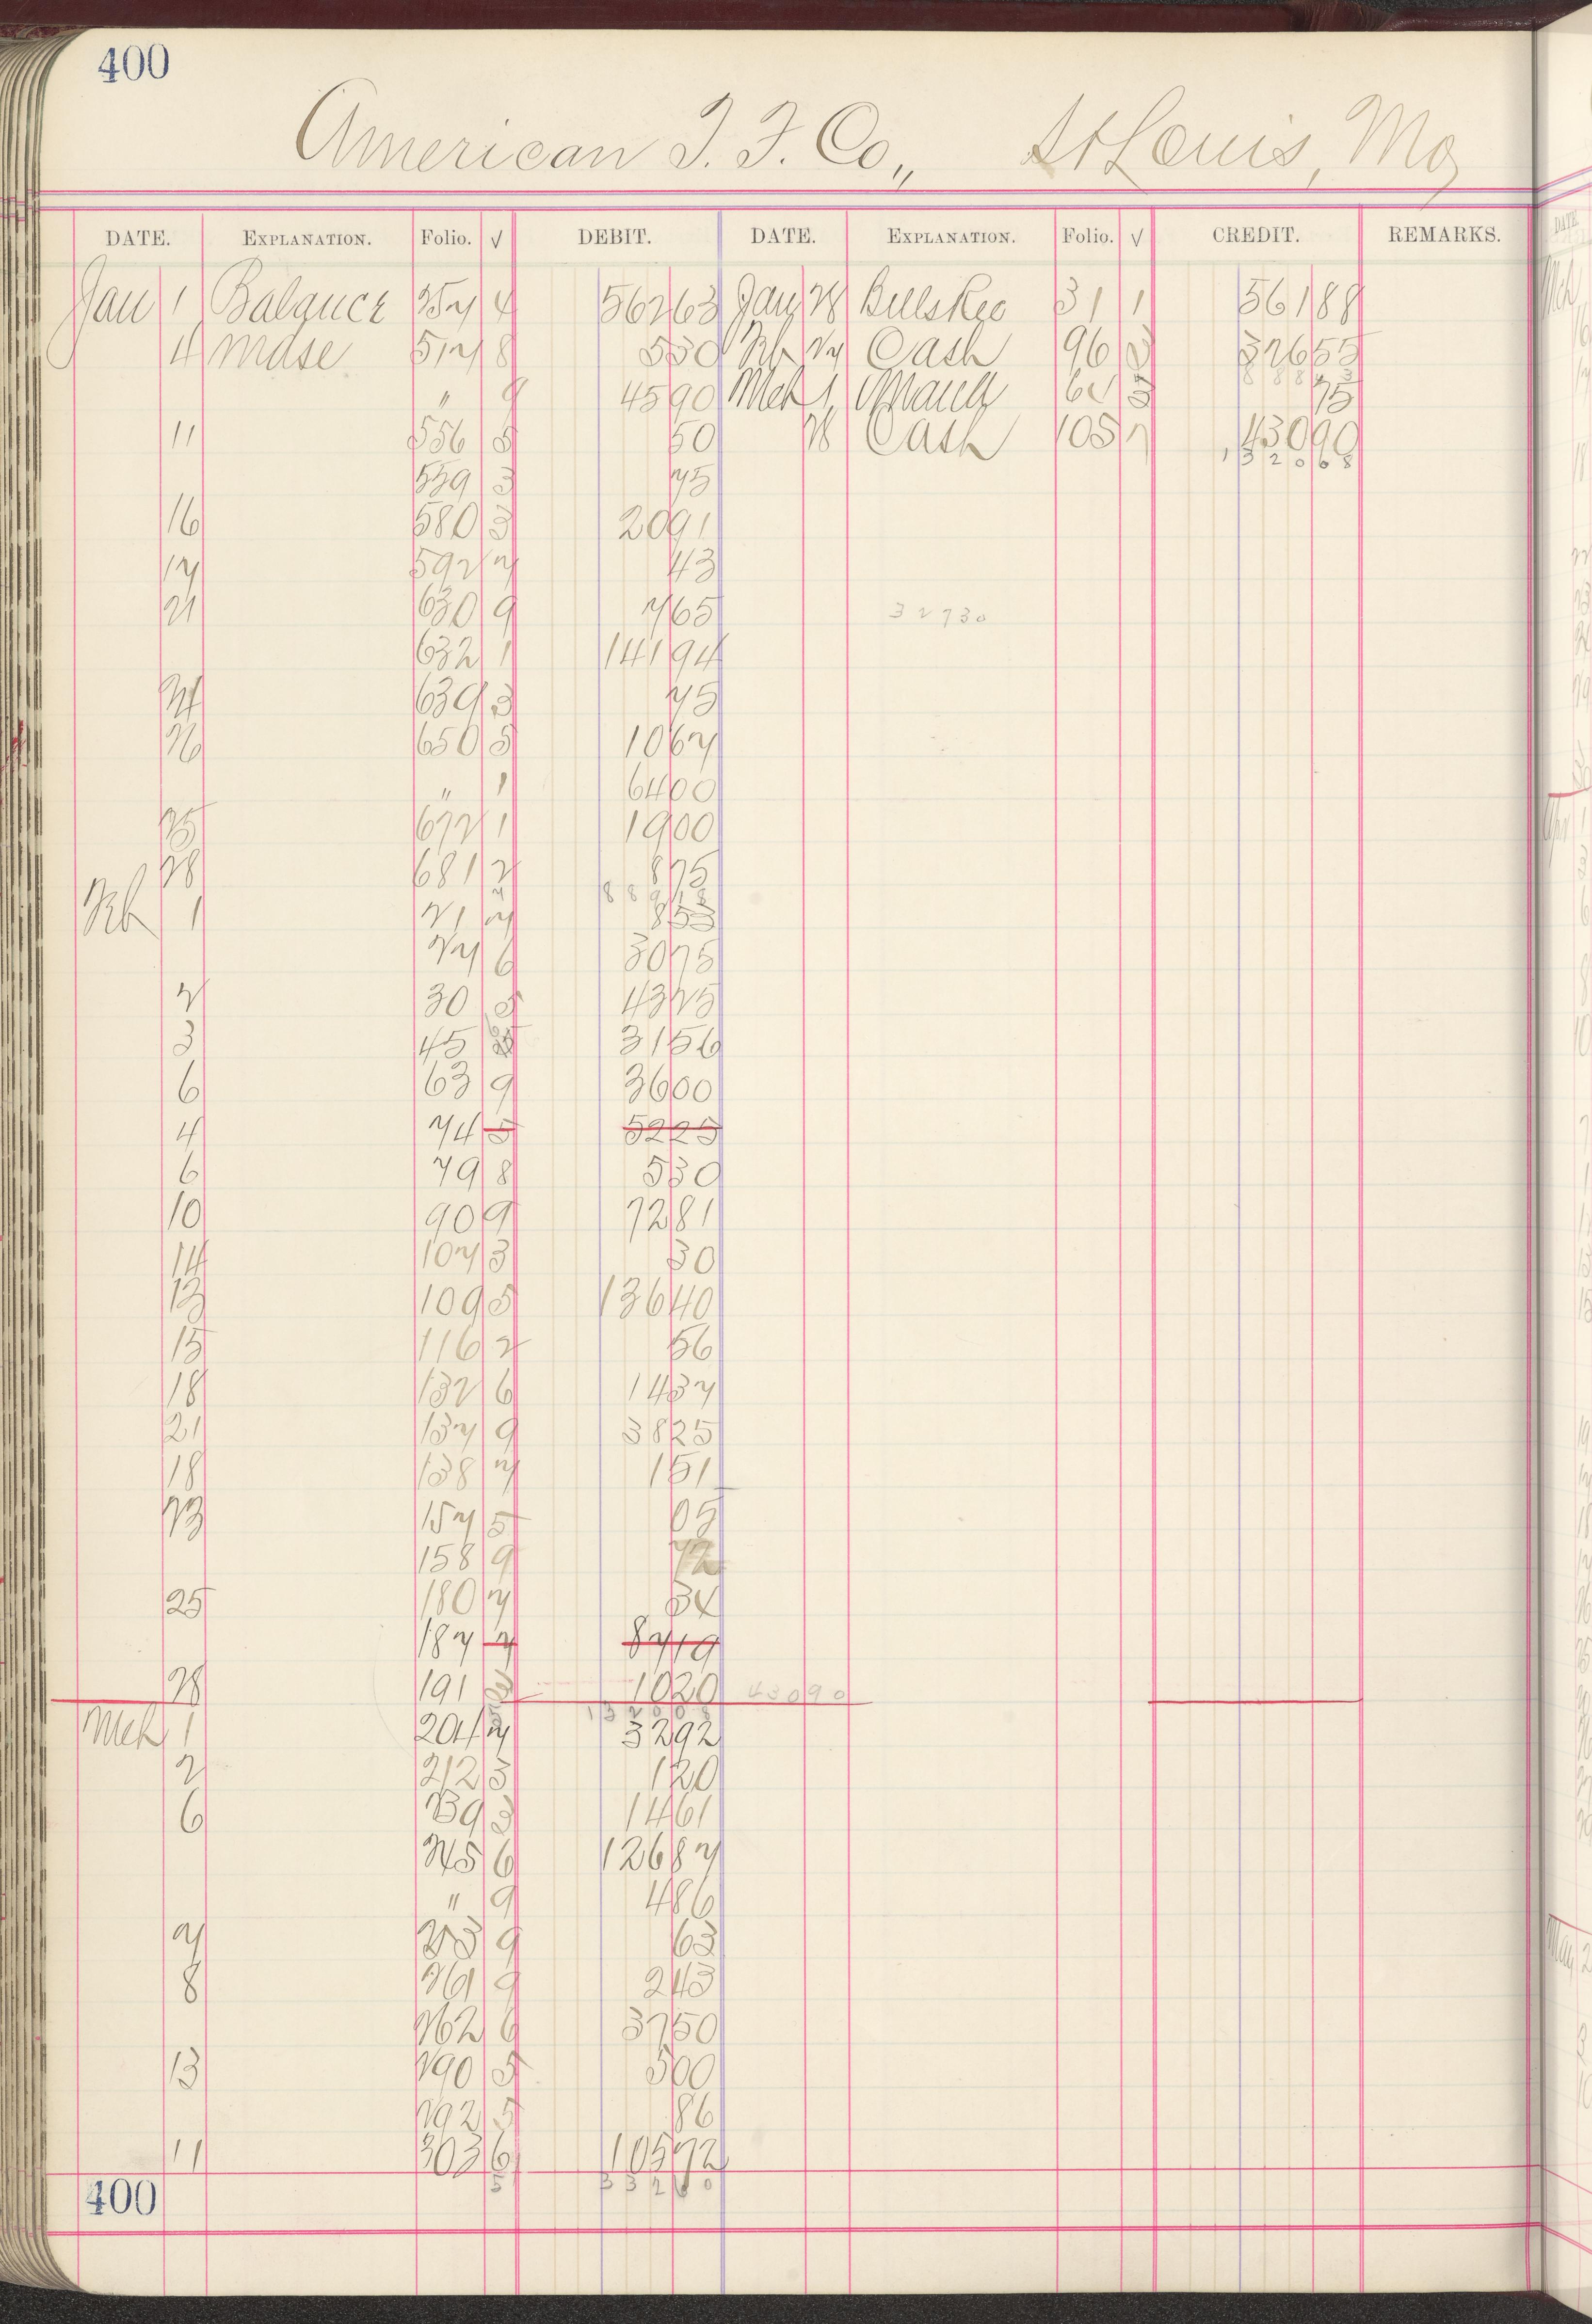 400
American T. F. Co., St Louis, Mo
DATE. EXPLANATION. Folio. √ DEBIT. DATE. EXPLANATION. Folio. √ CREDIT. REMARKS.
Jan 1 Balance 357 4 562 63 Jan 28 Bills Rec 31 1 561 88
4 Mdse 517 8 5 30 Feb 27 Cash 96 326 55
" 9 45 90 Mch 1 3 75
11 556 5 50 28 Cash 105 430 90
1 3 2 0 6 8
559 3 75
16 580 3 20 91
17 592 7 43
21 630 9 7 65 327 30
632 1 141 94
24 639 3 75
26 650 5 10 67
" 1 64 00
25 672 1 19 00
28 681 2 8 75
Feb 1 21 7 8 53
27 6 30 75
2 30 5 43 25
3 45 31 56
6 63 9 36 00
4 74 5 52 25
6 79 8 5 30
10 90 9 72 81
14 107 3 30
13 109 5 136 40
15 116 2 56
18 132 6 14 37
21 137 9 38 25
18 138 7 1 51
23 157 5 05
158 9 72
25 180 7
187 7 87 19
28 191 10 20 430 90
Mch 1 204 7 32 92
2 212 3 1 20
6 239 3 14 61
245 6 126 87
" 9 4 86
7 253 9 63
8 261 9 2 43
262 6 37 50
13 290 5 5 00
292 5 86
11 303 6 105 72
400